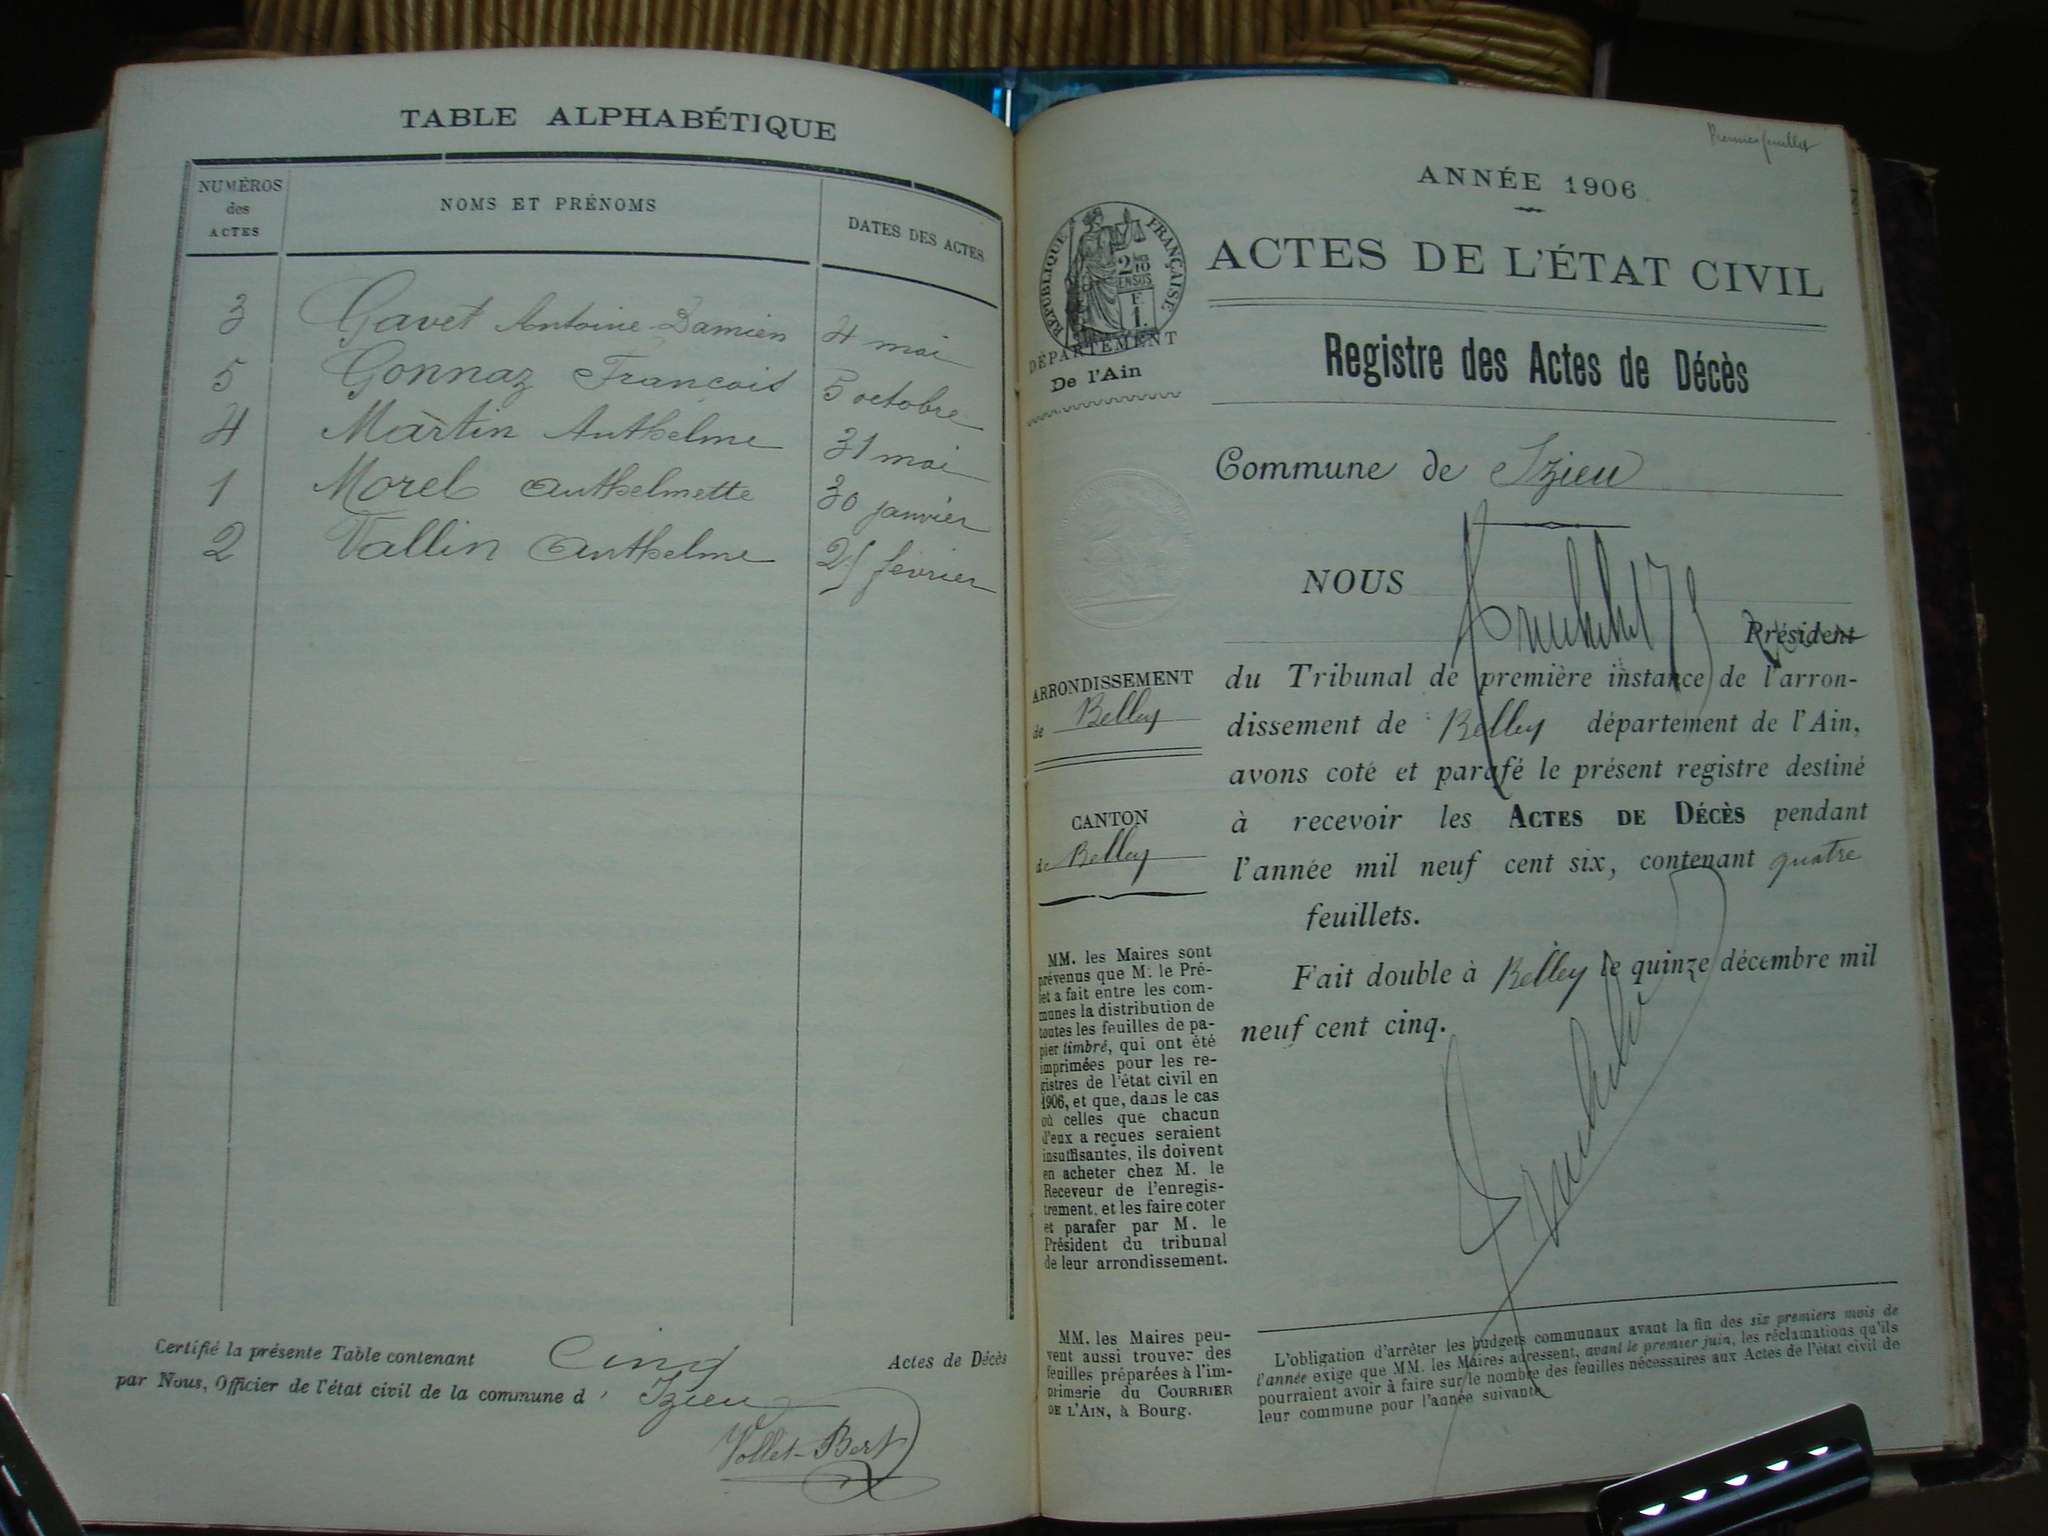 TABLE ALPHABÉTIQUE
NUMÉROS des ACTES
NOMS ET PRÉNOMS
DATES DES ACTES
3 Gavet Antoine Damien 4 mai
5 Gonnaz François 5 octobre
4 Martin Anthelme 31 mai
1 Morel Anthelmette 30 janvier
2 Vallin Anthelme février
Certifié la présente Table contenant Cinq Actes de Décès
par Nous, Officier de l'état civil de la commune d' Izieu
Vollet-Bert
Premier feuillet
ANNÉE 1906
ACTES DE L'ÉTAT CIVIL
Registre des Actes de Décès
Commune de Izieu
NOUS
Président
du Tribunal de première instance de l'arron-
dissement de Belley département de l'Ain,
avons coté et parafé le présent registre destiné
à recevoir les ACTES DE DÉCÈS pendant
l'année mil neuf cent six, contenant quatre
feuillets.
Fait double à Belley le quinze décembre mil
neuf cent cinq.
RÉPUBLIQUE FRANÇAISE
2/10
EN SUS
F.
1.
DÉPARTEMENT
De l'Ain
ARRONDISSEMENT
de Belley
CANTON
de Belley
MM. les Maires sont
prévenus que M. le Pré-
fet a fait entre les com-
munes la distribution de
toutes les feuilles de pa-
pier timbré, qui ont été
imprimées pour les re-
gistres de l'état civil en
1906, et que, dans le cas
où celles que chacun
d'eux a reçues seraient
insuffisantes, ils doivent
en acheter chez M. le
Receveur de l'enregis-
trement, et les faire coter
et parafer par M. le
Président du tribunal
de leur arrondissement.
MM. les Maires peu-
vent aussi trouver des
feuilles préparées à l'im-
primerie du COURRIER
DE L'AIN, à Bourg.
L'obligation d'arrêter les budgets communaux avant la fin des six premiers mois de
l'année exige que MM. les Maires adressent, avant le premier juin, les réclamations qu'ils
pourraient avoir à faire sur le nombre des feuilles nécessaires aux Actes de l'état civil de
leur commune pour l'année suivante